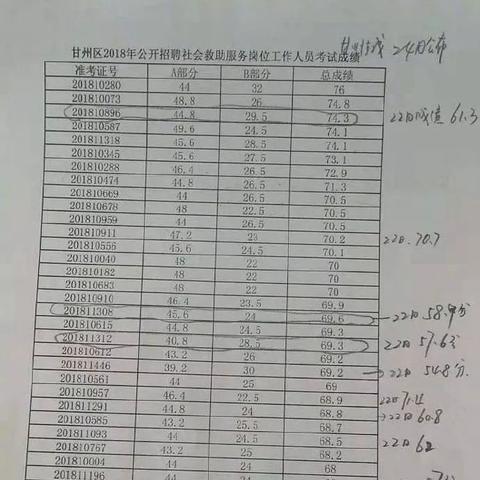 甘州区2018年公开招聘社会救助服务岗位工作人员考试成绩
24日公布
准考证号 A部分 B部分 总成绩
201810280 44 32 76
201810073 48.8 26 74.8
201810896 44.8 29.5 74.3 22日成绩 61.3
201810587 49.6 24.5 74.1
201811318 45.6 28.5 74.1
201810345 45.6 27.5 73.1
201810288 46.4 26.5 72.9
201810474 44.8 26.5 71.3
201810669 44 26.5 70.5
201810678 48 22.5 70.5
201810959 44 26.5 70.5
201810911 47.2 23 70.2 22日.70.7
201810556 45.6 24.5 70.1
201810040 48 22 70
201810182 48 22 70
201810683 48 22 70
201810910 46.4 23.5 69.9
201811308 45.6 24 69.6 22日 58.
201810615 44.8 24.5 69.3
201811312 40.8 28.5 69.3 22日 57.6分
201810612 43.2 26 69.2
201811446 39.2 30 69.2 22日 54.8分
201810561 44 25 69
201810957 46.4 22.5 68.9 22日
201811291 44.8 24 68.8 22日 60.8
201810585 43.2 25.5 68.7
201811093 44 24.5 68.5 22日 62
201810767 43.2 25 68.2
201810004 44 24 68
201811196 44 24